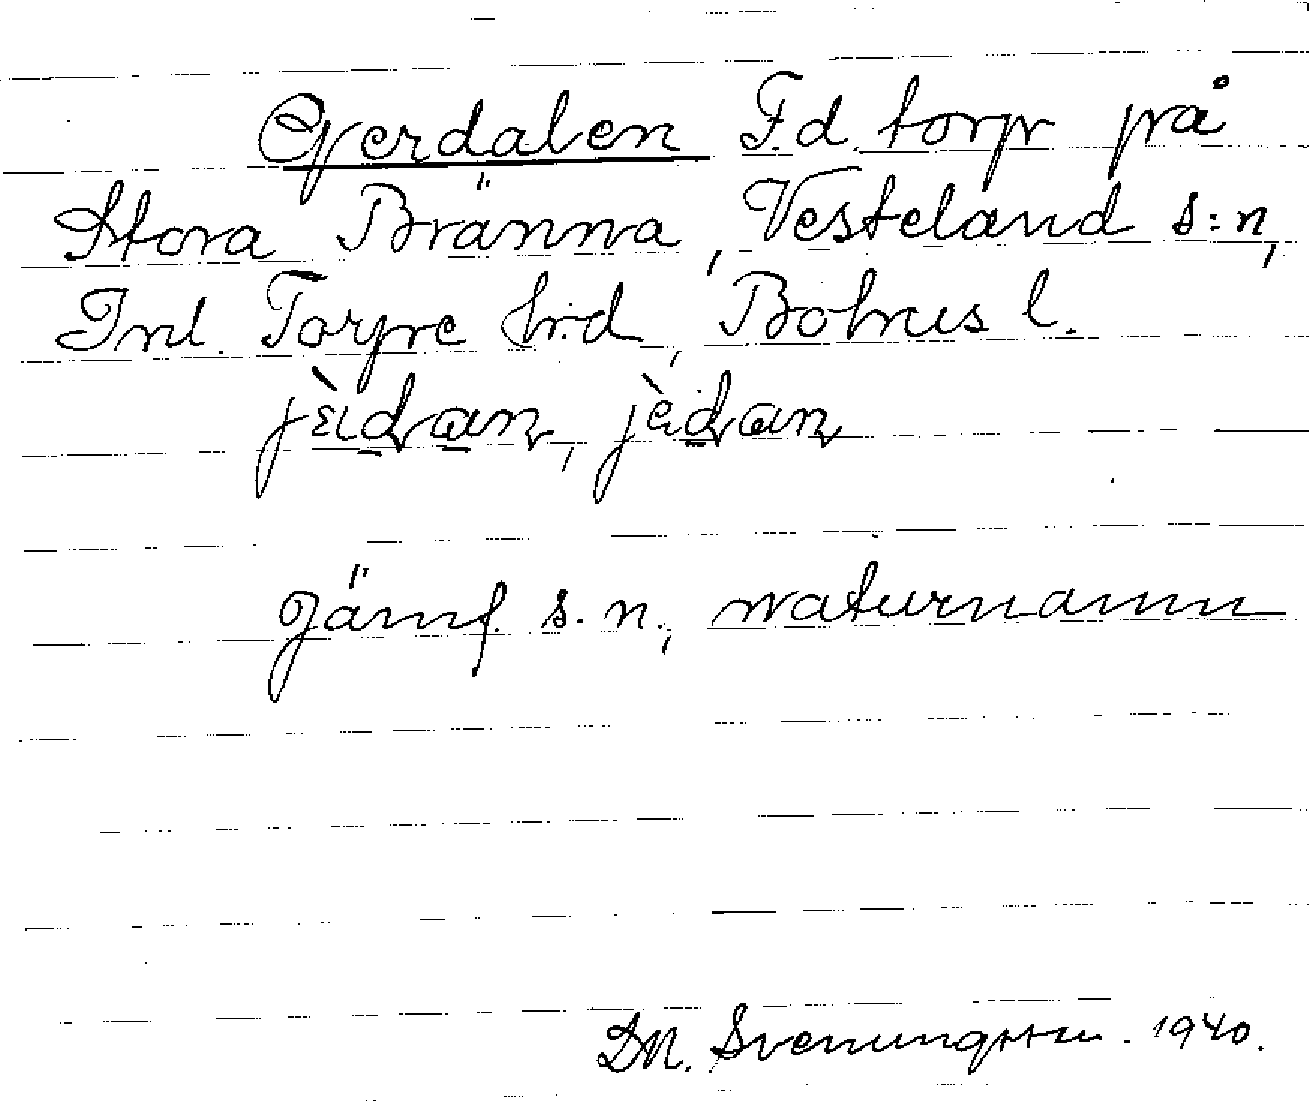 Gerdalen F.d. torp på
Stora Bränna, Vesteland s:n,
Inl. Torpe h:d, Bohus l.
jämf s.n., naturnamn
Svenungsson. 1940.